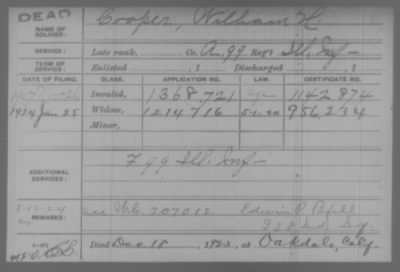 DEAD
NAME OF SOLDIER: Cooper, William H.
SERVICE: Late rank, Co. A, 99 Reg't Ill. Inf.
TERM OF SERVICE: Enlisted , 1 Discharged , 1
DATE OF FILING. CLASS. APPLICATION NO. LAW. CERTIFICATE NO.
Invalid, 1368,721 1142874
1924 Jan 25 Widow, 1214716 5-1-20 956,234
Minor,
ADDITIONAL SERVICES: F 99 Ill. Inf
REMARKS: W.C. 207012 Edwin
Ind. Inf.
Died Dec 18, 1923, at Oakdale, Calif.